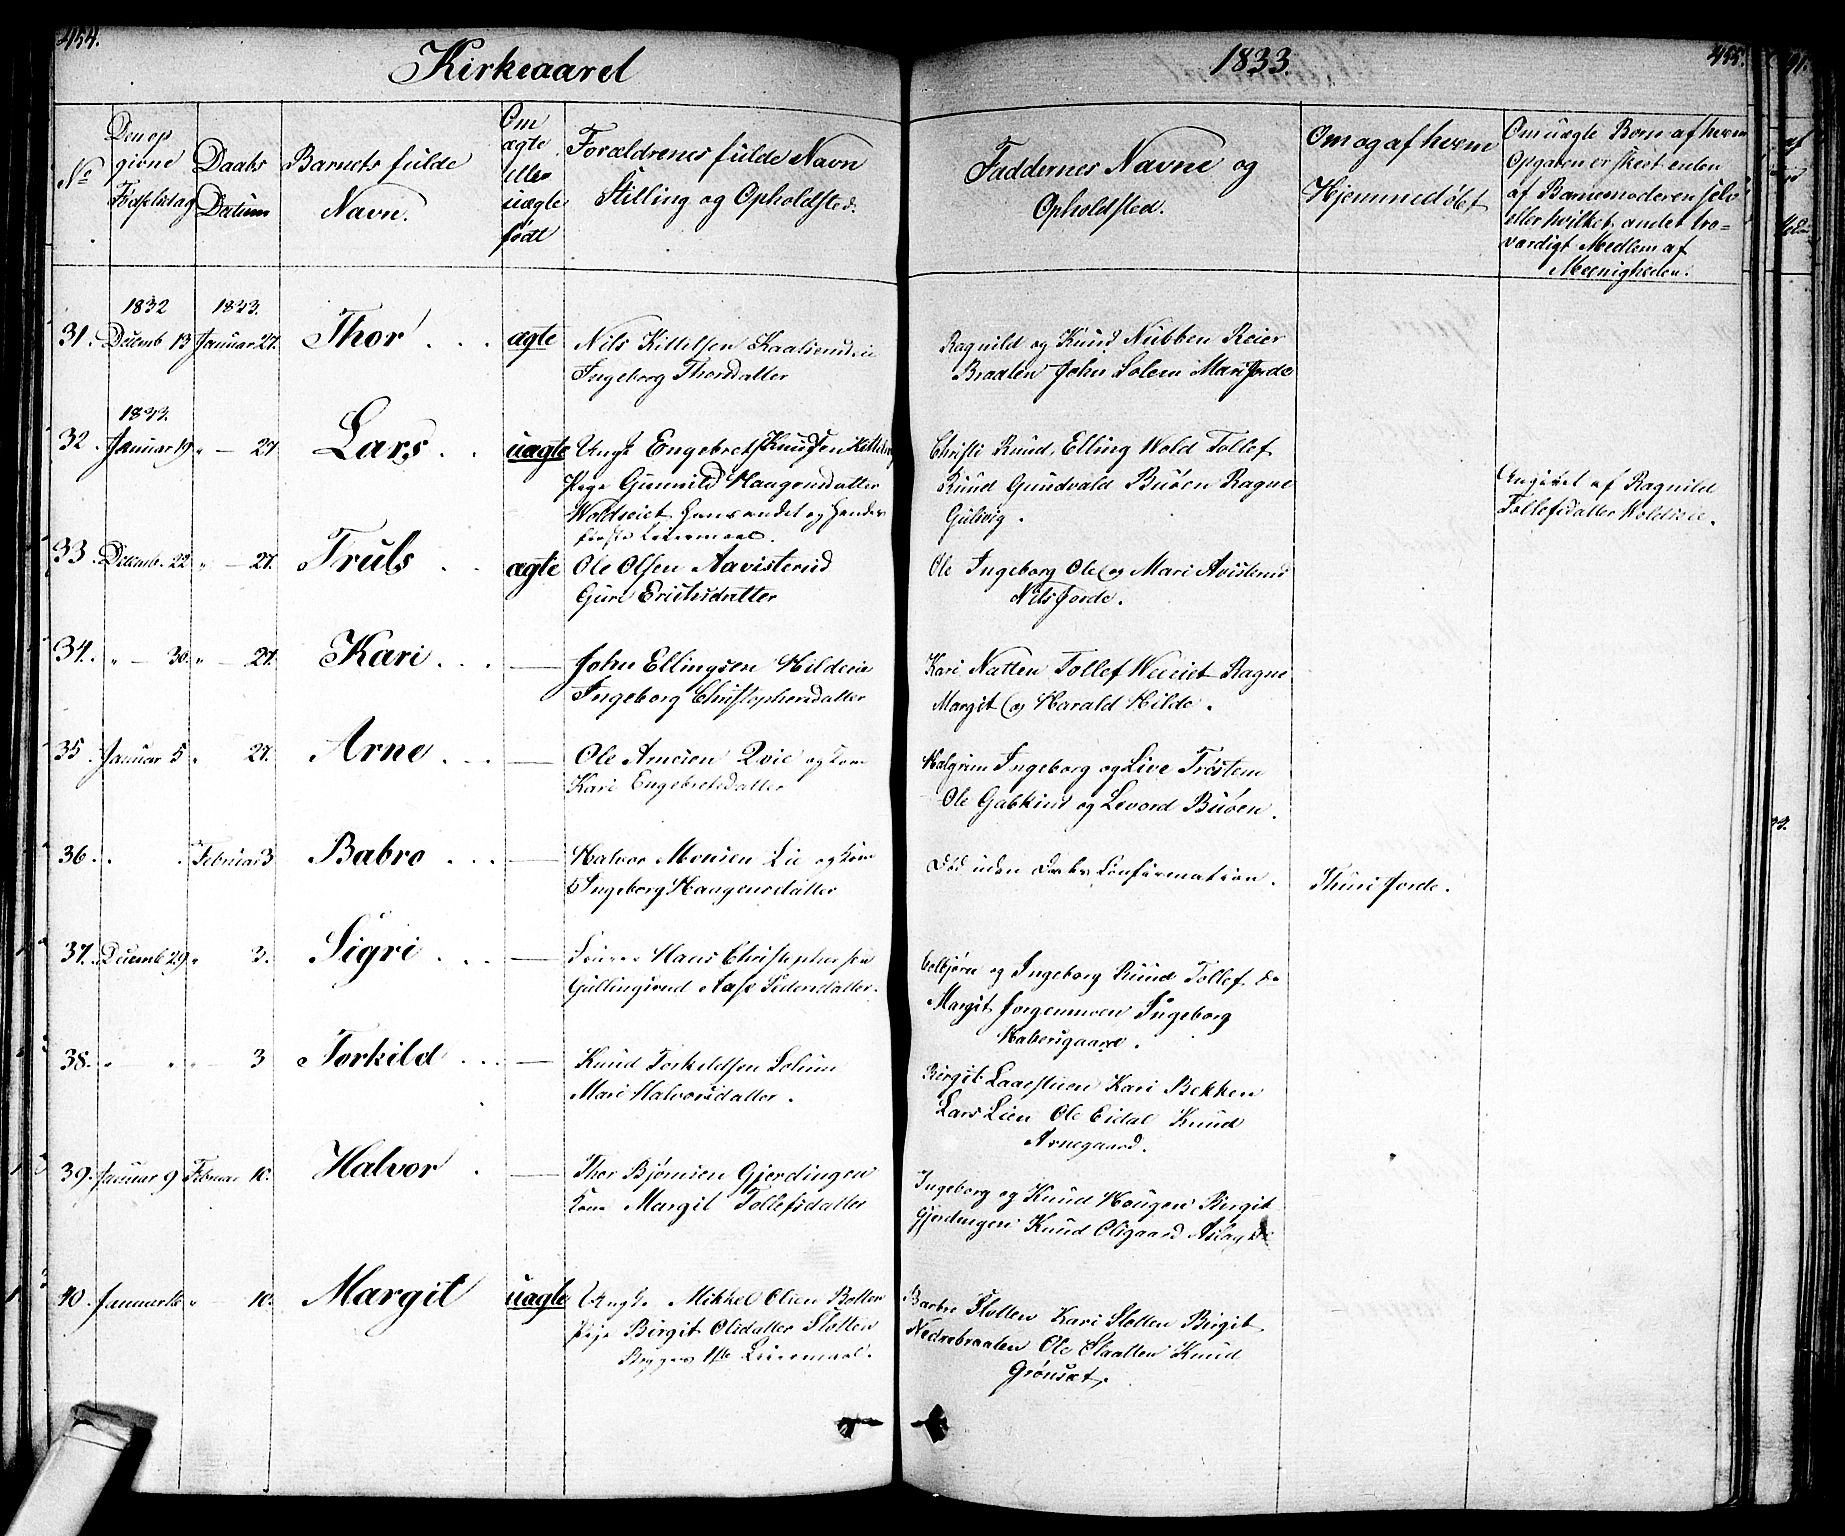 454.
Kirkeaaret
1833.
455.
No
Den op
givne
Fødselsdag
Daabs
Datum
Barnets fulde
Navn.
Om
ægte
eller
uægte
født
Forældrenes fulde Navn
Stilling og Opholdsted.
Faddernes Navne og
Opholdsted.
Om og af hvem
Hjemmedøbt
Om uægte Børn af hvem
Opgaven er skeet enten
af Barnemoderen selv
eller hvilket andet tro=
værdigt Medlem af
Meenigheden.
1832 1833.
31. Decemb 13 Januar 27. Thor ægte
Nils Kittelsen
Ingeborg Thorsdatter
Ragnild og Knud Nubben Reier
Braaten John Solem Mari Jorde
1833.
32. Januar 19 " — 27 Lars uægte
Ungk Engebret Knudsen
Pige Gunnild Haagensdatter
Woldeiet Hans andet og Hendes
første Leiermaal.
Christi Ruud, Elling Wold Tollef
Ruud Gundvald Buøen Ragne
Gulsvig.
Angivet af Ragnild
Tollefsdatter Woldeie.
33. Decemb. 22 " — 27. Truls ægte
Ole Olsen Aavisterud
Guri Erichsdatter
Ole Ingeborg Ole og Mari Avisterud
Nils Jorde.
34. " — 30. " — 27. Kari —
John Ellingsen Hildeie
Ingeborg Christophersdatter
Kari Natten Tollef Ragne
Margit og Harald Hilde.
35. Januar 5 " 27. Arne —
Ole Arnesen Qvie og Kone
Kari Engebretsdatter
Halgrim Ingeborg og Live Trøstem
Ole Gulskind og Levord Buøen.
36. Februar 3 Babro —
Halvor Monsen Lie og Kone
Ingeborg Haagensdatter
Død uden Daabs Confirmation.
Thuri Jorde.
37. Decemb 29 " 3. Sigri —
Hans Christophersen
Gullingsrud Aase
og Ingeborg Ruud Tollef do
Margit Jorgenmoen Ingeborg
38. " " " 3 Torkild —
Knud Torkildsen Solem
Mari Halvorsdatter.
Birgit Laaestuen Kari Bekken
Lars Lien Ole Eidal Knud
Arnegaard.
39. Januar 9 Februar 10. Halvor —
Thor Bjørnsen Gjerdingen
Kone Margit Tollefsdatter
Ingeborg og Knud Haugen Birgit
Gjerdingen Knud Olsgaard Aslag do
40. Januar " 10. Margit uægte
Ungk. Mikkel Olsen Botten
Pige Birgit Olsdatter Sletten
Begges 1ste Leiermaal.
Barbro Sletten Kari Sletten Birgit
Nedrebraaten Ole Slaatten Knud
Grønset.